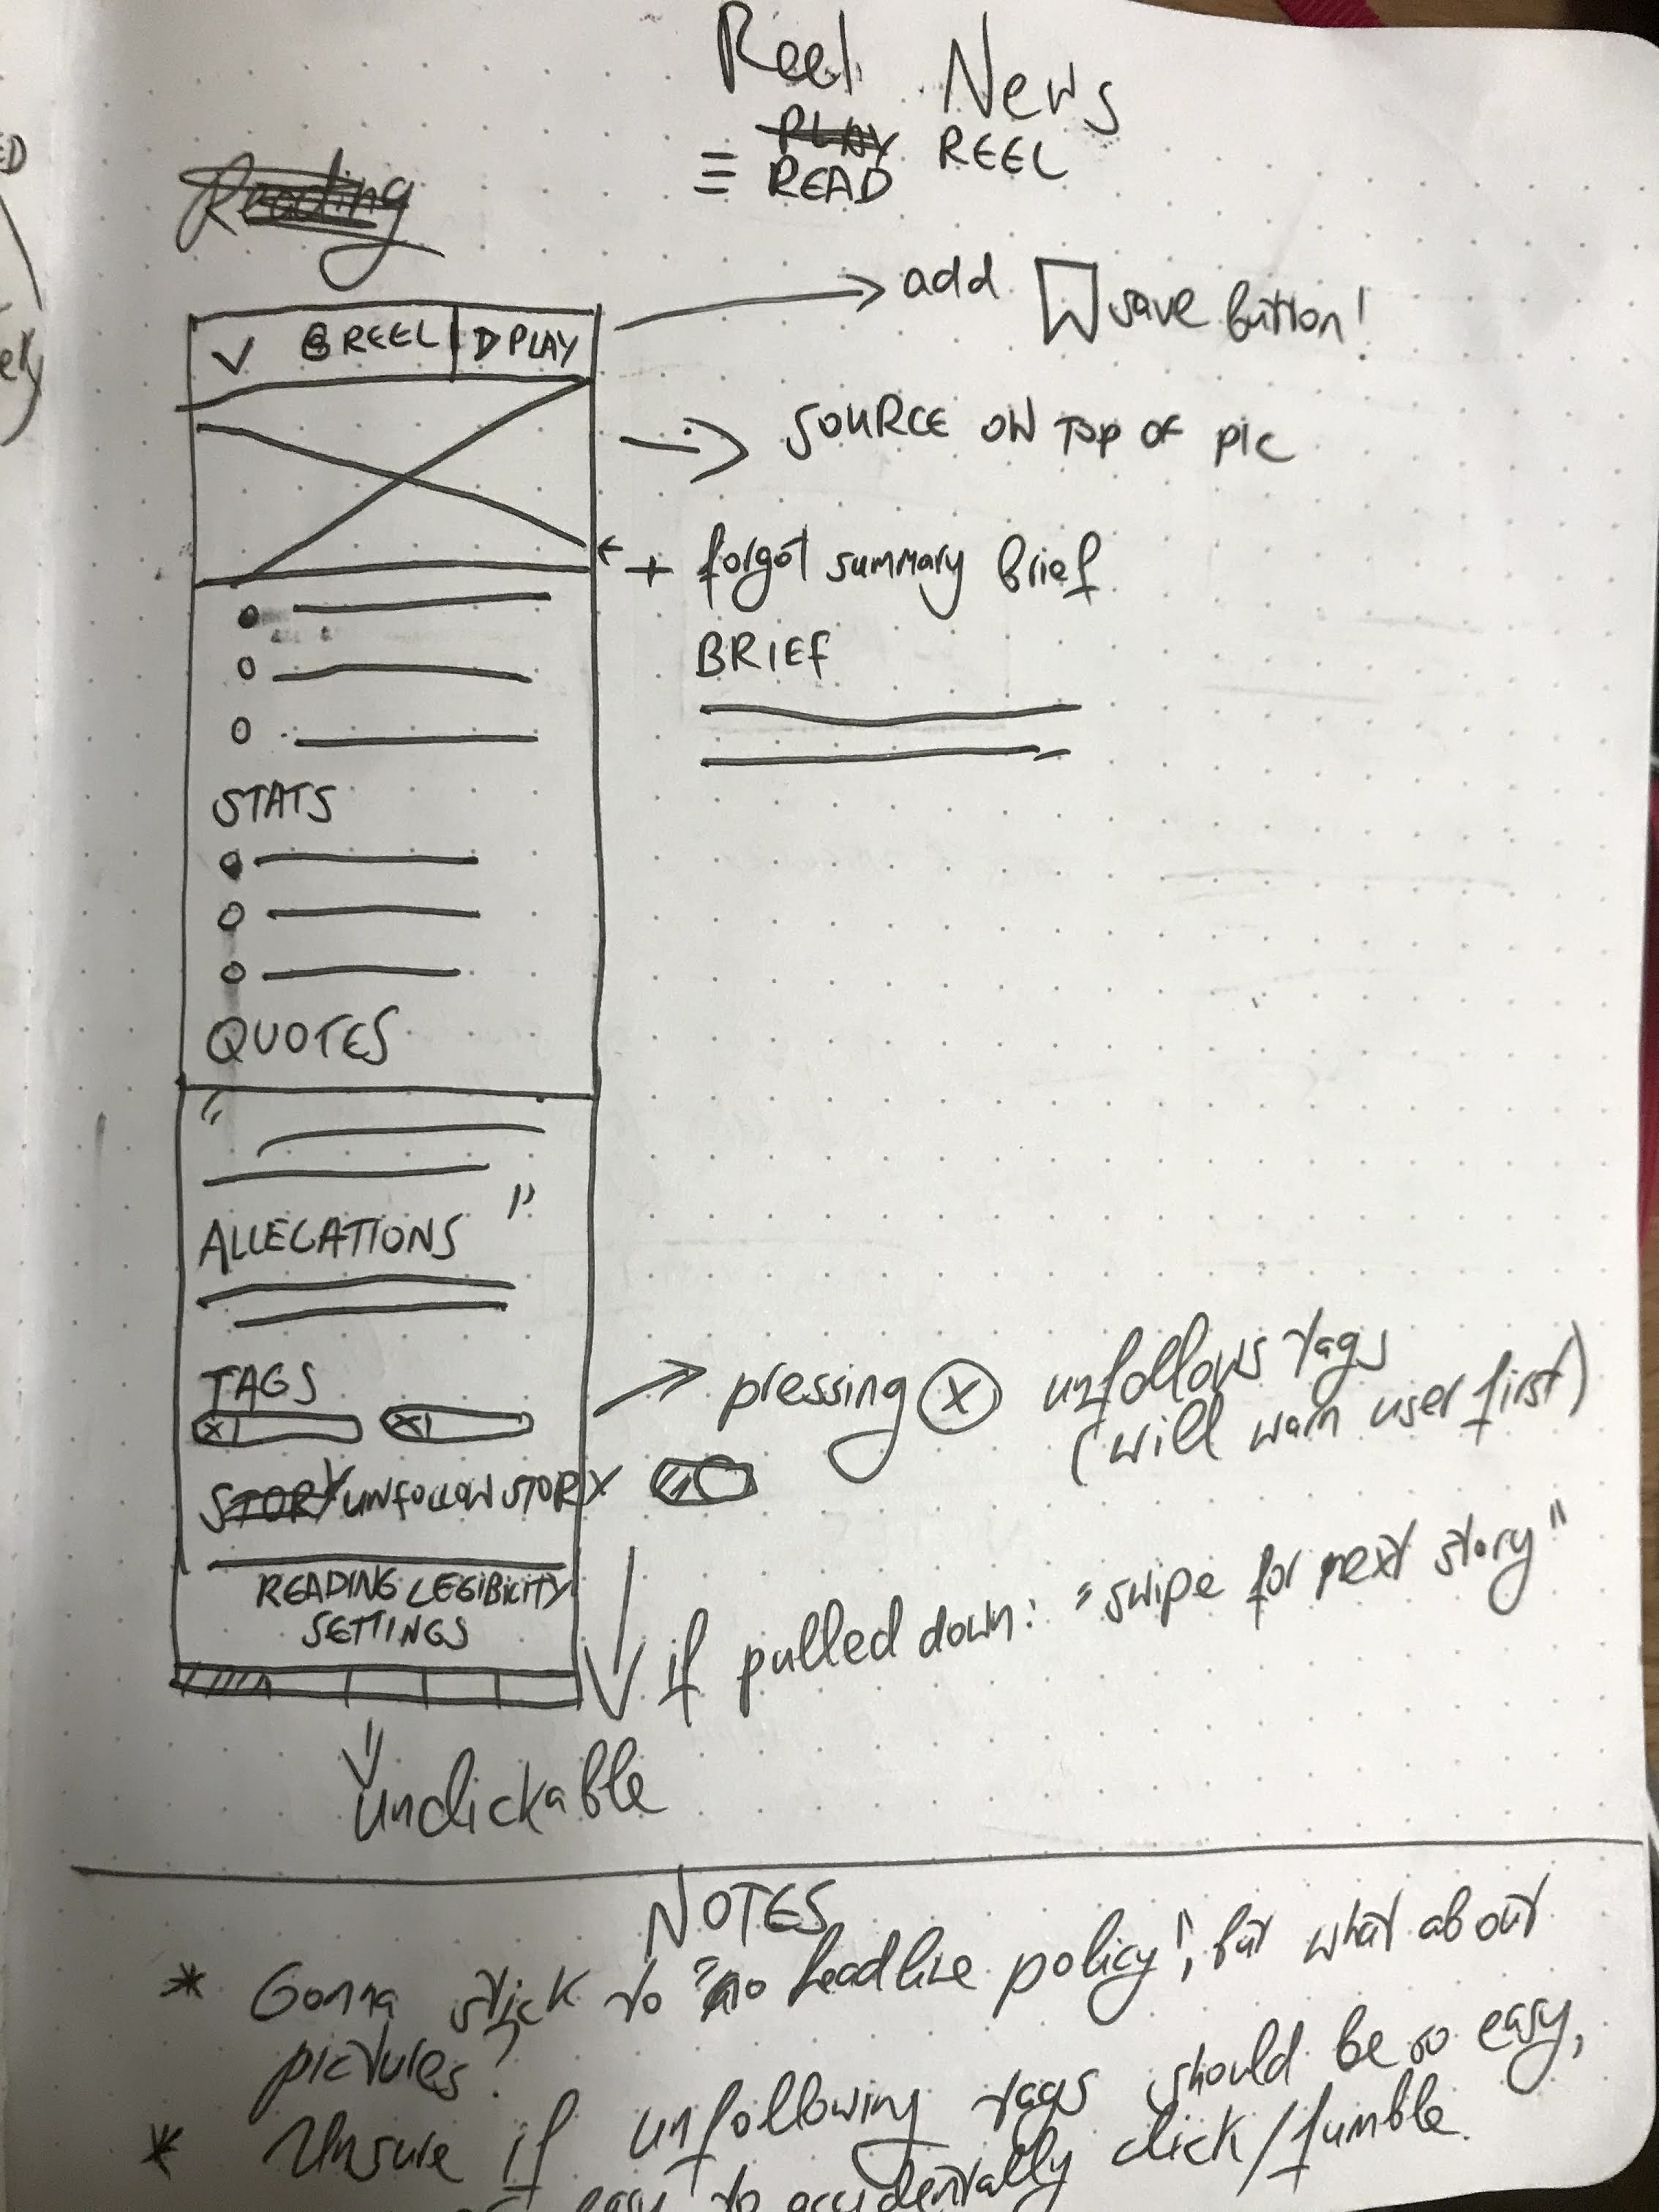 Reel News
PLAY REEL
READ
Reading
ED
ely
add save button!
REEL PLAY
SOURCE ON TOP OF PIC
+ forgot summary brief
BRIEF
STATS
QUOTES
"
"
ALLEGATIONS
TAGS
X X
pressing X unfollows tags
(will warn user first)
STORY UNFOLLOW STORY
READING LEGIBILITY
SETTINGS
if pulled down: "swipe for next story"
unclickable
NOTES
* Gonna stick to "no headline policy", but what about
pictures?
* Unsure if unfollowing tags should be so easy,
easy to accidentally click/fumble.